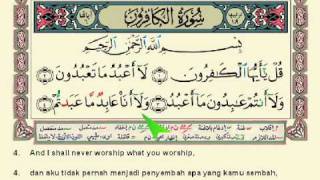 سُورَةُ الكَافِرُونَ
بِسْمِ اللَّهِ الرَّحْمَٰنِ الرَّحِيمِ
قُلْ يَٰٓأَيُّهَا ٱلْكَٰفِرُونَ ۝ لَآ أَعْبُدُ مَا تَعْبُدُونَ ۝
وَلَآ أَنتُمْ عَٰبِدُونَ مَآ أَعْبُدُ ۝ وَلَآ أَنَا۠ عَابِدٌ مَّا عَبَدتُّمْ
4. And I shall never worship what you worship,
4. dan aku tidak pernah menjadi penyembah spa yang kamu sembah,